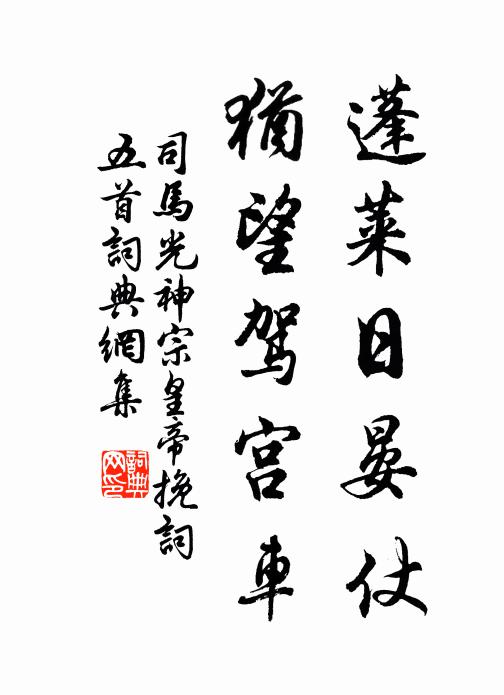 蓬莱日晏仗
猶望駕宫車
司馬光神宗皇帝挽詞
五首詞典網集
詞典
网印